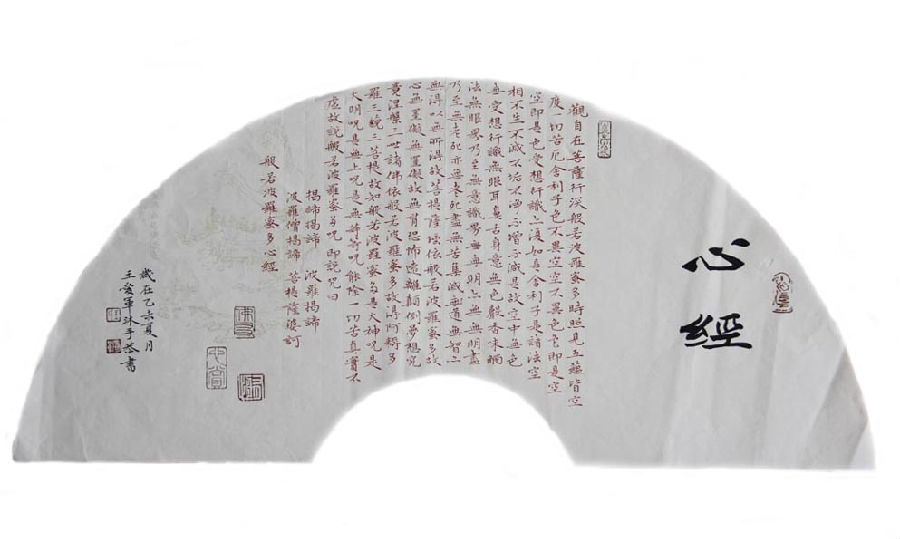 心經
觀自在菩薩行深般若波羅蜜多時照見五蘊皆空
度一切苦厄舍利子色不異空空不異色色即是空
空即是色受想行識亦復如是舍利子是諸法空
相不生不滅不垢不淨不增不減是故空中無色
無受想行識無眼耳鼻舌身意無色聲香味觸
法無眼界乃至無意識界無無明亦無無明盡
乃至無老死亦無老死盡無苦集滅道無智亦
無得以無所得故菩提薩埵依般若波羅蜜多故
心無罣礙無罣礙故無有恐怖遠離顛倒夢想究
竟涅槃三世諸佛依般若波羅蜜多故得阿耨多
羅三藐三菩提故知般若波羅蜜多是大神咒是
大明咒是無上咒是無等等咒能除一切苦真實不
虛故說般若波羅蜜多咒即說咒曰
揭諦揭諦 波羅揭諦
波羅僧揭諦 菩提薩婆訶
般若波羅蜜多心經
歲在乙亥夏月
王愛軍沐手恭書